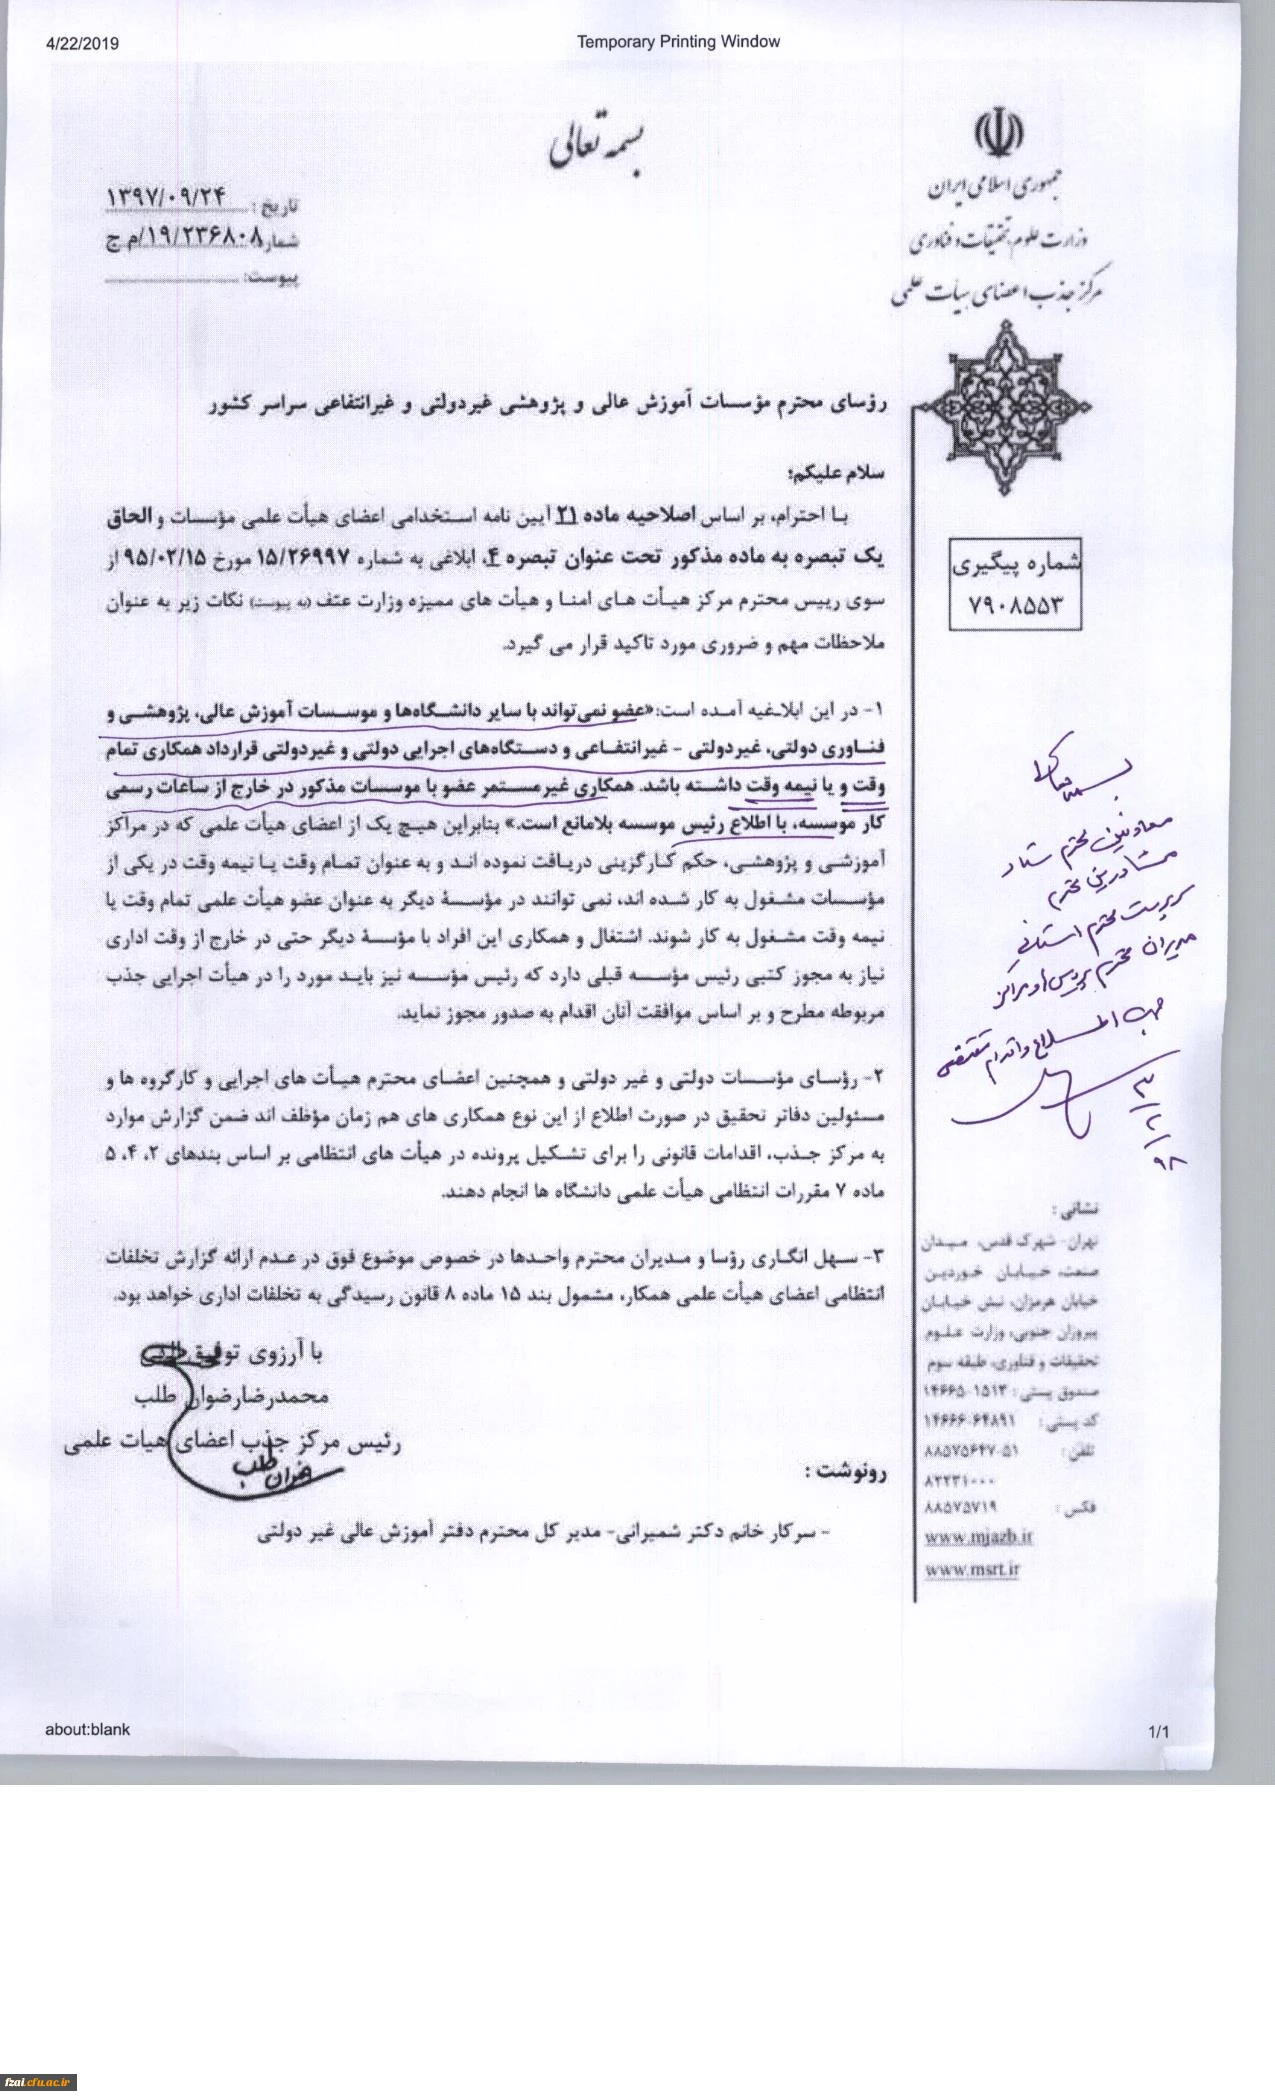 4/22/2019
Temporary Printing Window
بسمه تعالی
جمهوری اسلامی ایران
وزارت علوم، تحقیقات و فناوری
مرکز جذب اعضای هیأت علمی
تاریخ : ۱۳۹۷/۰۹/۲۴
شماره ۱۹/۲۳۶۸۰۸/م ج
پیوست:
رؤسای محترم مؤسسات آموزش عالی و پژوهشی غیردولتی و غیرانتفاعی سراسر کشور
سلام علیکم؛
با احترام، بر اساس اصلاحیه ماده ۲۱ آیین نامه استخدامی اعضای هیأت علمی مؤسسات و الحاق
یک تبصره به ماده مذکور تحت عنوان تبصره ۴، ابلاغی به شماره ۱۵/۲۶۹۹۷ مورخ ۹۵/۰۲/۱۵ از
سوی رییس محترم مرکز هیأت های امنا و هیأت های ممیزه وزارت عتف (به پیوست) نکات زیر به عنوان
ملاحظات مهم و ضروری مورد تاکید قرار می گیرد.
۱- در این ابلاغیه آمده است: «عضو نمی‌تواند با سایر دانشگاه‌ها و موسسات آموزش عالی، پژوهشی و
فناوری دولتی، غیردولتی - غیرانتفاعی و دستگاه‌های اجرایی دولتی و غیردولتی قرارداد همکاری تمام
وقت و یا نیمه وقت داشته باشد. همکاری غیرمستمر عضو با موسسات مذکور در خارج از ساعات رسمی
کار موسسه، با اطلاع رئیس موسسه بلامانع است.» بنابراین هیچ یک از اعضای هیأت علمی که در مراکز
آموزشی و پژوهشی، حکم کارگزینی دریافت نموده اند و به عنوان تمام وقت یا نیمه وقت در یکی از
مؤسسات مشغول به کار شده اند، نمی توانند در مؤسسۀ دیگر به عنوان عضو هیأت علمی تمام وقت یا
نیمه وقت مشغول به کار شوند. اشتغال و همکاری این افراد با مؤسسۀ دیگر حتی در خارج از وقت اداری
نیاز به مجوز کتبی رئیس مؤسسه قبلی دارد که رئیس مؤسسه نیز باید مورد را در هیأت اجرایی جذب
مربوطه مطرح و بر اساس موافقت آنان اقدام به صدور مجوز نماید.
۲- رؤسای مؤسسات دولتی و غیر دولتی و همچنین اعضای محترم هیأت های اجرایی و کارگروه ها و
مسئولین دفاتر تحقیق در صورت اطلاع از این نوع همکاری های هم زمان مؤظف اند ضمن گزارش موارد
به مرکز جذب، اقدامات قانونی را برای تشکیل پرونده در هیأت های انتظامی بر اساس بندهای ۲، ۴، ۵
ماده ۷ مقررات انتظامی هیأت علمی دانشگاه ها انجام دهند.
۳- سهل انگاری رؤسا و مدیران محترم واحدها در خصوص موضوع فوق در عدم ارائه گزارش تخلفات
انتظامی اعضای هیأت علمی همکار، مشمول بند ۱۵ ماده ۸ قانون رسیدگی به تخلفات اداری خواهد بود.
با آرزوی توفیق الهی
محمدرضا رضوان طلب
رئیس مرکز جذب اعضای هیات علمی
رضوان طلب
رونوشت :
- سرکار خانم دکتر شمیرانی- مدیر کل محترم دفتر آموزش عالی غیر دولتی
شماره پیگیری
۷۹۰۸۵۵۳
بسمه تعالی
معاونین محترم ستاد
مشاورین محترم
سرپرست محترم استانی
مدیران محترم پردیس ها و مراکز
جهت اطلاع و اقدام مقتضی
۹۸/۲/۳
نشانی :
تهران- شهرک قدس، میدان
صنعت، خیابان خوردین
خیابان هرمزان، نبش خیابان
پیروزان جنوبی، وزارت علوم
تحقیقات و فناوری، طبقه سوم
صندوق پستی : ۱۵۱۳-۱۴۶۶۵
کد پستی : ۶۴۸۹۱-۱۴۶۶۶
تلفن : ۸۸۵۷۵۶۴۷-۵۱
۸۲۲۳۱۰۰۰
فکس : ۸۸۵۷۵۷۱۹
www.mjazb.ir
www.msrt.ir
about:blank
1/1
fzai.cfu.ac.ir